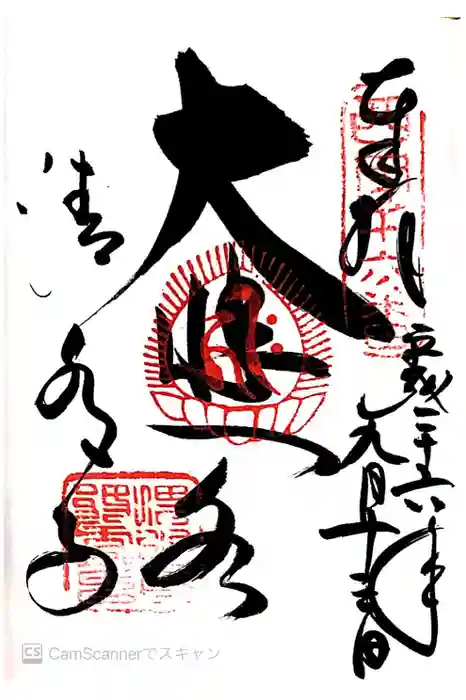 奉拝
西国十六番
平成二十六年
九月
大悲閣
清水寺
CS CamScannerでスキャン